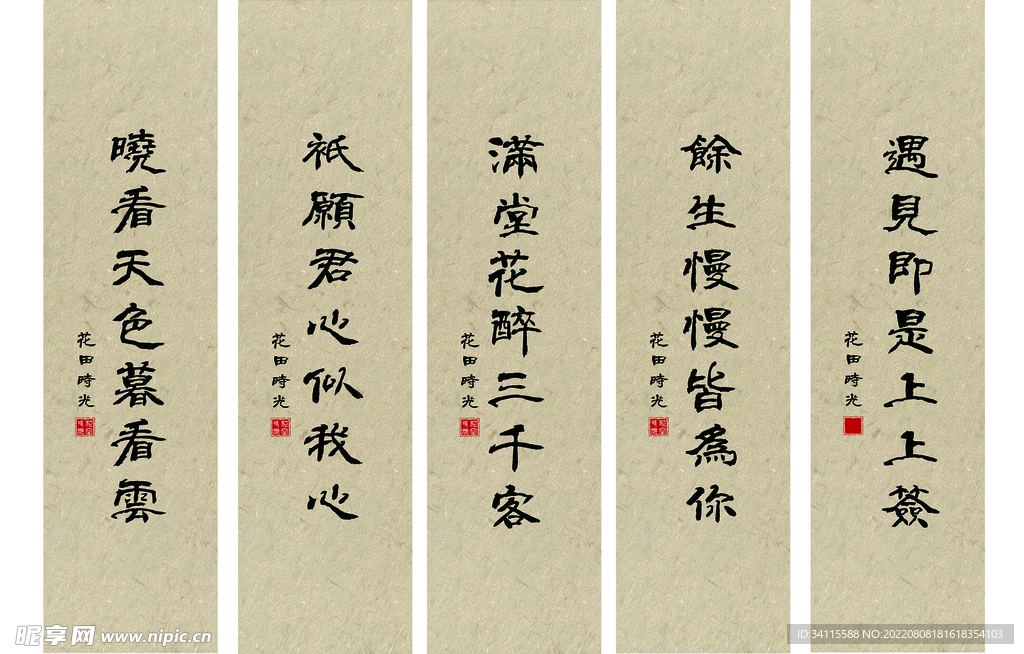 遇見即是上上簽
花田時光
餘生慢慢皆為你
花田時光
滿堂花醉三千客
花田時光
祇願君心似我心
花田時光
曉看天色暮看雲
花田時光
昵享网 www.nipic.cn
ID:34115588 NO:20220808181618354103